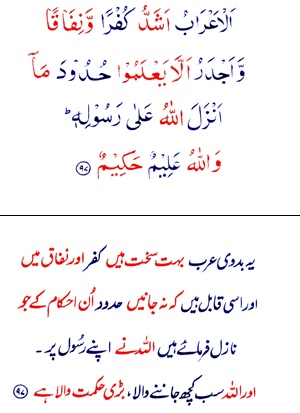 اَلْاَعْرَابُ اَشَدُّ كُفْرًا وَّنِفَاقًا
وَّاَجْدَرُ اَلَّا يَعْلَمُوْا حُدُوْدَ مَاۤ
اَنْزَلَ اللّٰهُ عَلٰى رَسُوْلِهٖ ؕ
وَاللّٰهُ عَلِيْمٌ حَكِيْمٌ ۹۷
یہ بدوی عرب بہت سخت ہیں کفر اور نفاق میں
اور اسی قابل ہیں کہ نہ جانیں حدود اُن احکام کے جو
نازل فرمائے ہیں اللہ نے اپنے رسُول پر۔
اور اللہ سب کچھ جاننے والا، بڑی حکمت والا ہے ۹۷